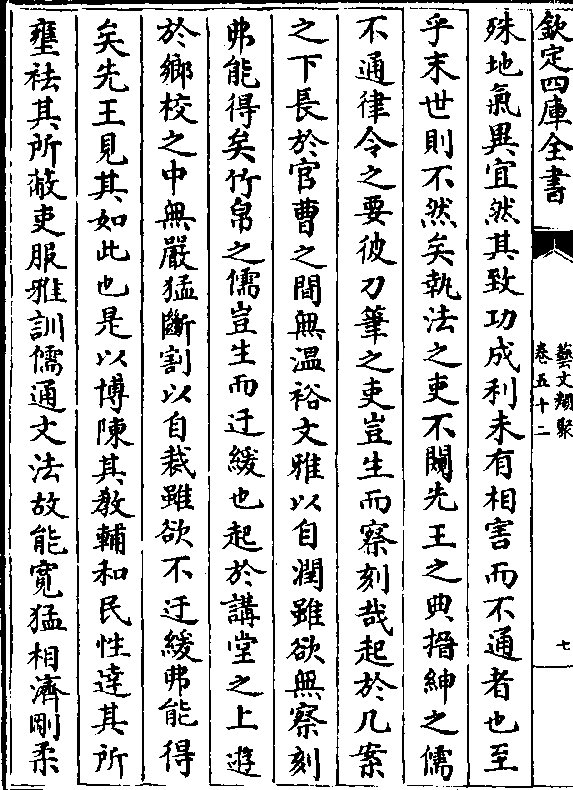 欽定四庫全書
藝文類聚
卷五十二
七
殊地氣異宜然其致功成利未有相害而不通者也至
乎末世則不然矣執法之吏不闚先王之典搢紳之儒
不通律令之要彼刀筆之吏豈生而察刻哉起於几案
之下長於官曹之間無溫裕文雅以自潤雖欲無察刻
弗能得矣竹帛之儒豈生而迂緩也起於講堂之上遊
於鄉校之中無嚴猛斷割以自裁雖欲不迂緩弗能得
矣先王見其如此也是以博陳其教輔和民性達其所
壅袪其所蔽吏服雅訓儒通文法故能寛猛相濟剛柔